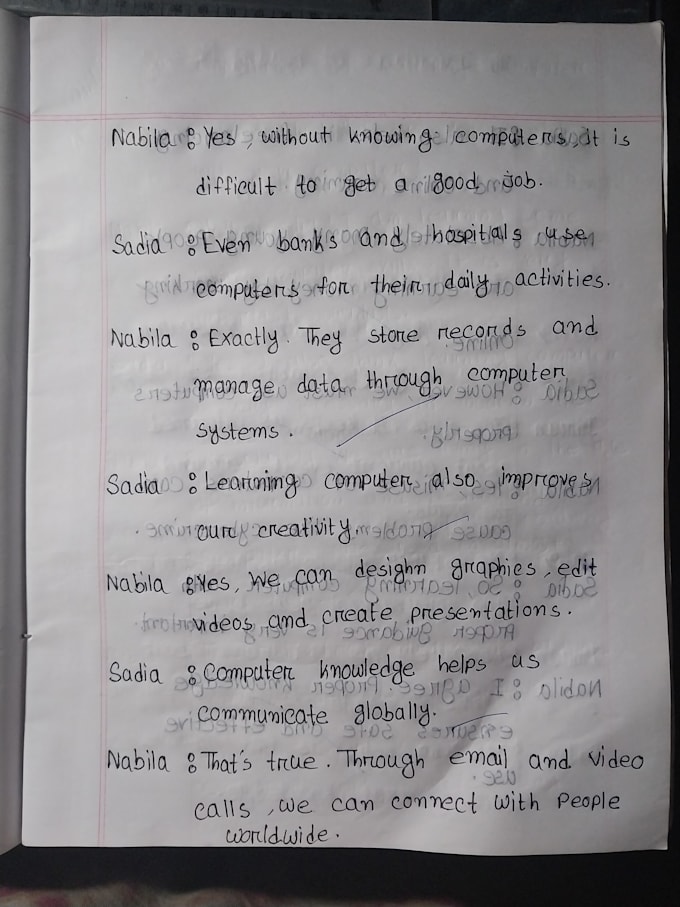 Nabila : Yes, without knowing computers, It is
difficult to get a good job.
Sadia : Even banks and hospitals use
computers for their daily activities.
Nabila : Exactly. They store records and
manage data through computer
systems.
Sadia : Learning computer also improves
our creativity.
Nabila : Yes, We can desighn graphics, edit
videos and create presentations.
Sadia : Computer knowledge helps us
communicate globally.
Nabila : That's true. Through email and video
calls, we can connect with People
worldwide.